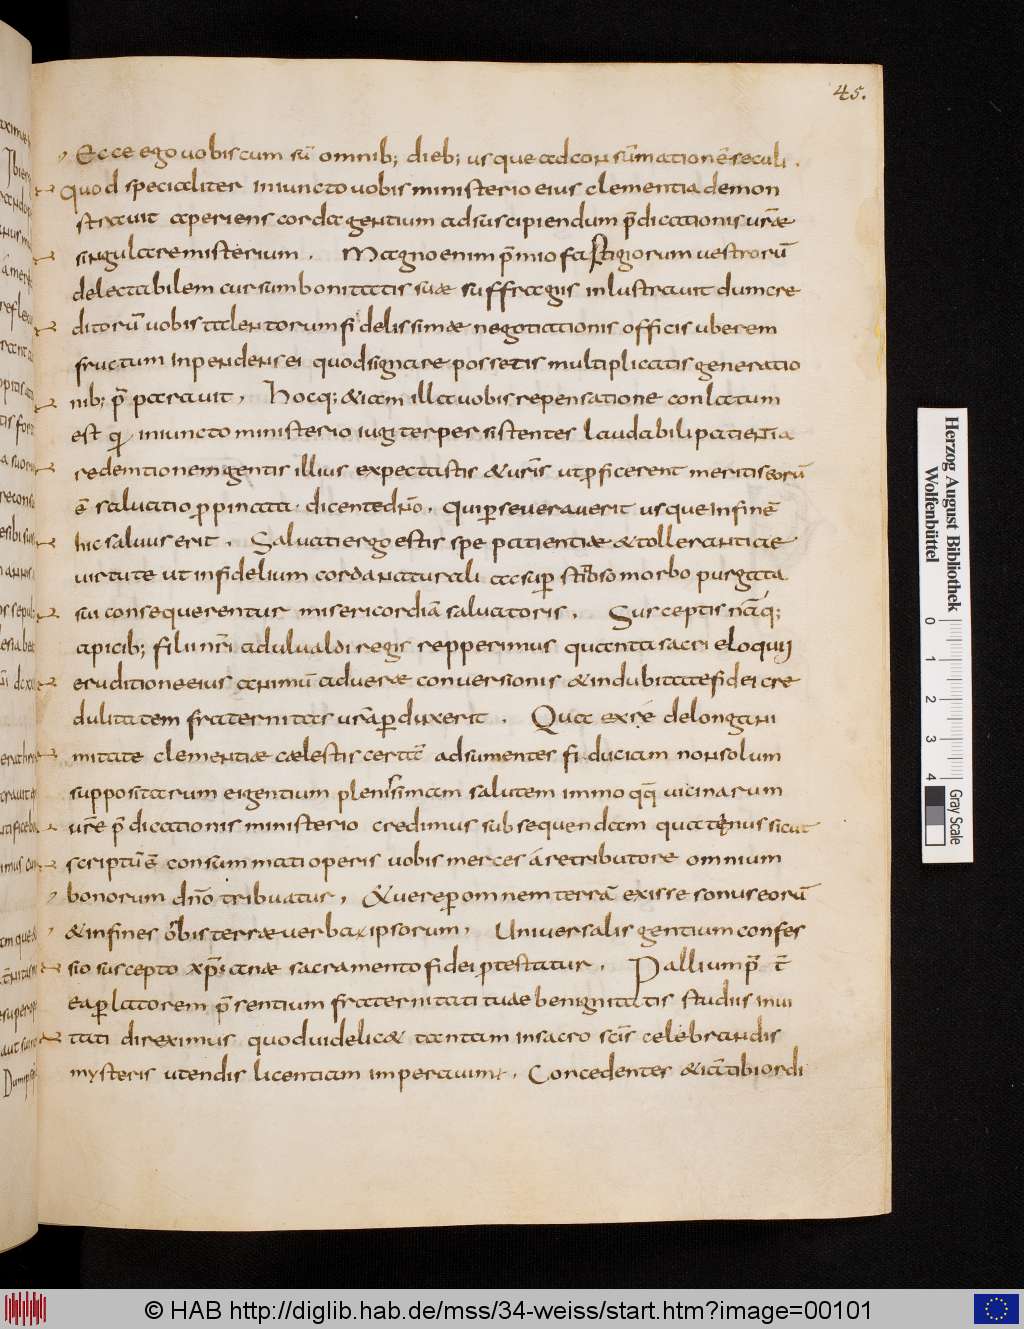 45.
Ecce ego uobiscum sū omnib; dieb; usque ad consūmationē seculi.
Quod specialiter iniuncto uobis ministerio eius clementia demon
strauit aperiens corda gentium ad suscipiendum p̄dicationis ur̄ae
singulare misterium. Magno enim p̄mio fastigiorum uestrorū
delectabilem cursum bonitatis suae suffragiis inlustrauit dum cre
ditorū uobis talentorum fidelissimae negotiationis officiis uberem
fructum inpendens ei quod signare possetis multiplicatis generatio
nib; p̄parauit, Hocq; &iam illa uobis repensatione conlatum
est qui iniuncto ministerio iugiter persistentes laudabili patientia
redemtionem gentis illius expectastis & ur̄is ut proficerent meritis eorū
ē saluatio propinata. dicente dn̄o. Qui perseuerauerit usque in finē
hic saluus erit. Saluati ergo estis spe patientiae & tollerantiae
uirtute ut infidelium corda naturali ac sup
morbo purgata
sui consequerentur misericordiā saluatoris. Susceptis nāq;
apicib; filii nr̄i adulualdi regis repperimus quanta sacri eloquii
eruditione eius animū ad uerae conuersionis & indubitatae fidei cre
dulitatem fraternitas ur̄a perduxerit. Qua ex re de longani
mitate clementiae caelestis certā adsumentes fiduciam non solum
suppositarum ei gentium plenissimam salutem immo qq̄ uicinarum
ur̄e p̄dicationis ministerio credimus subsequendam quatenus sicut
scriptū ē consummati operis uobis merces a retributore omnium
bonorum dn̄o tribuatur, & uere per omnem terrā exisse sonus eorū
& in fines orbis terrae uerba ipsorum, Uniuersalis gentium confes
sio suscepto xp̄ianae sacramento fidei protestatur. Pallium p̄t̄
ea per latorem p̄sentium fraternitati tuae benignitatis studiis inui
tati direximus quod uidelic& tantam in sacro scīs celebrandis
mysteriis utendis licentiam imperauim;. Concedentes &iā tibi ordi
Herzog August Bibliothek
Wolfenbüttel
0 1 2 3 4
Gray Scale
© HAB http://diglib.hab.de/mss/34-weiss/start.htm?image=00101